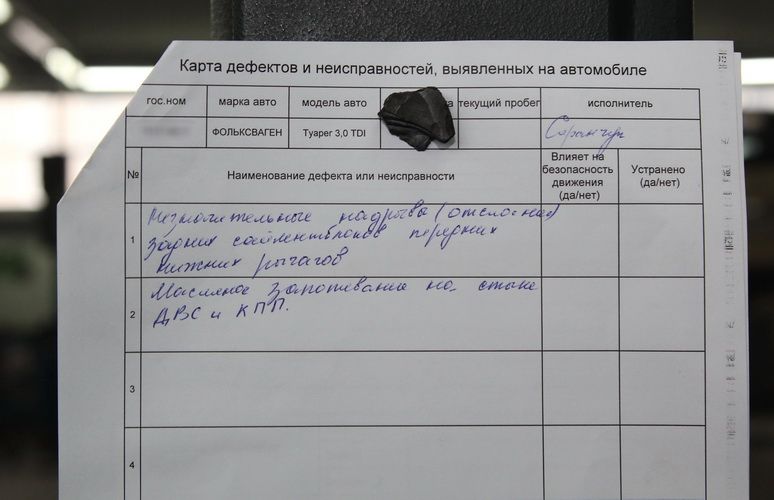 Карта дефектов и неисправностей, выявленных на автомобиле
гос.ном марка авто модель авто текущий пробег исполнитель
ФОЛЬКСВАГЕН Туарег 3,0 TDI
№ Наименование дефекта или неисправности Влияет на безопасность движения (да/нет) Устранено (да/нет)
1 Незначительные надрывы (отслоения)
задних сайлентблоков передних
нижних рычагов
2 Масляное запотевание на стыке
ДВС и КПП.
3
4